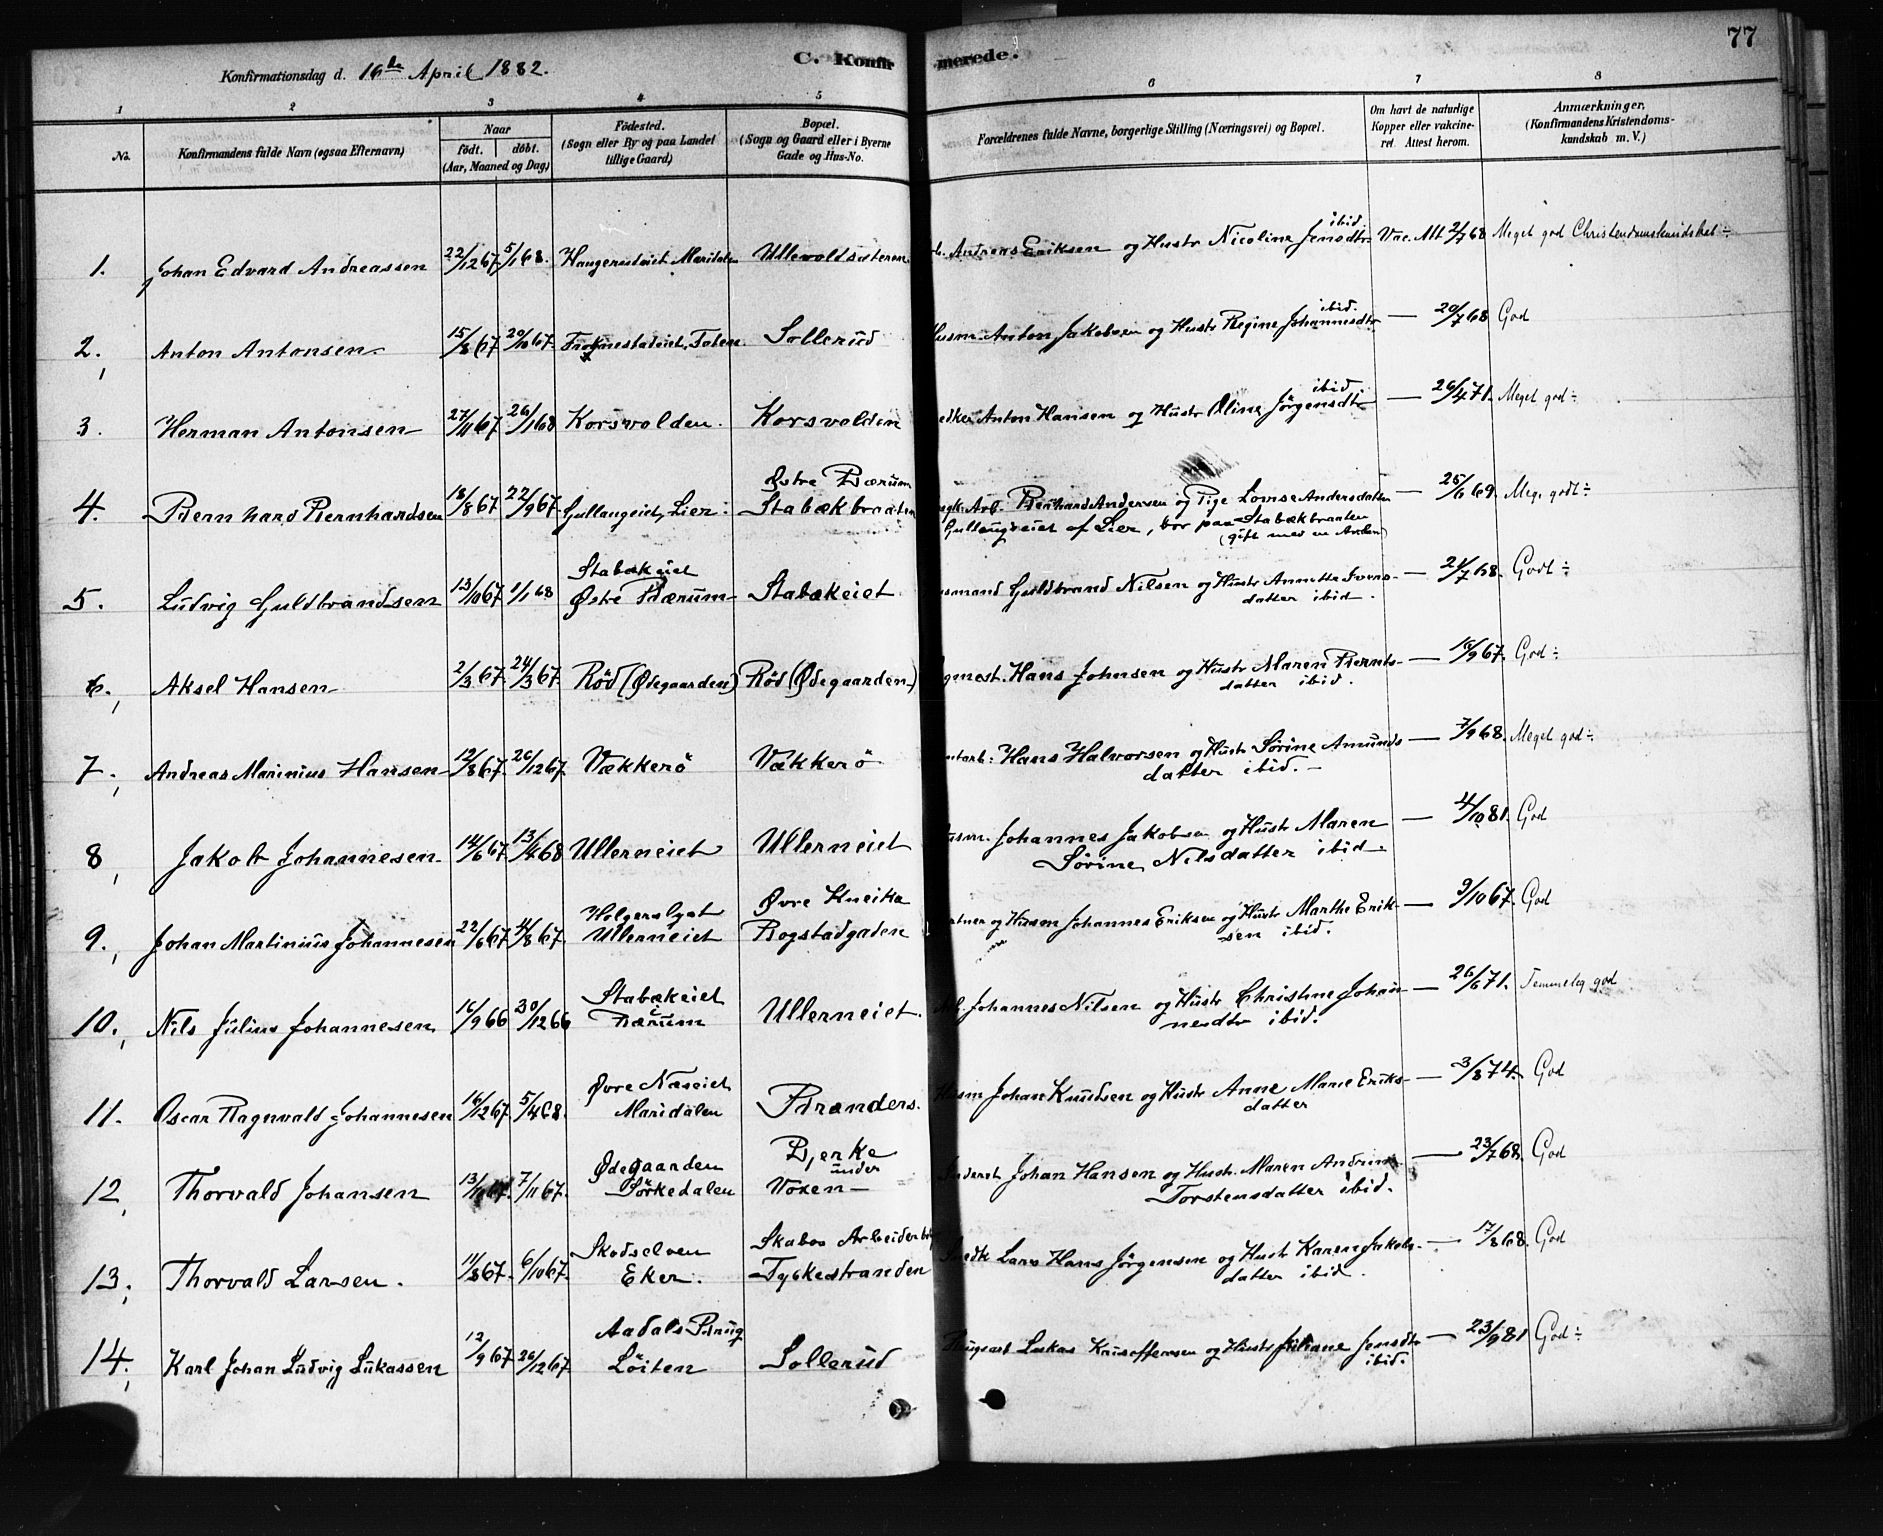 77
C. Konfirmerede.
Konfirmationsdag d. 16de April 1882.
1 2 3 4 5 6 7 8
No. Konfirmandens fulde Navn (ogsaa Efternavn) Naar født. døbt. (Aar, Maaned og Dag) Fødested. (Sogn eller By og paa Landet tillige Gaard) Bopæl. (Sogn og Gaard eller i Byerne Gade og Hus-No. Forældrenes fulde Navne, borgerlige Stilling (Næringsvei) og Bopæl. Om havt de naturlige Kopper eller vakcineret. Attest herom. Anmærkninger. (Konfirmandens Kristendomskundskab m. V.)
1. Johan Edvard Andreassen 22/12 67. 5/1 68. Maridalen Ullevoldsæteren Andreas Eriksen og Hustr Nicoline Jensdtr ibid Vac. Att 2/7 68 Meget god Christendomskundskab ÷
2, Anton Antonsen 15/8 67 20/10 67. Toten Sollerud Husm. Anton Jakobsen og Hustr Regine Johannesdtr ibid. — 20/7 68 God
3. Herman Antonsen 27/11 67 26/1 68 Korsvolden. Korsvolden Anton Hansen og Hustr Oline Jørgensdtr ibid — 26/4 71. Meget god ÷
4. Bernhard Bernhardsen 18/8 67 22/9 67. Gullaugeiet, Lier. Østre Bærum Stabækbraaten Arb. Bernhard Andersen og Pige Lovise Andersdatter — 25/6 69. Meg. godt ÷
Gullaugeiet af Lier, bor paa Stabækbraaten
(gift med en Anden)
5. Ludvig Guldbrandsen 13/10 67 1/1 68 Stabækeiet Østre Bærum Stabækeiet Guldbrand Nilsen og Hustr Annette Svens-
datter ibid. — 24/7 68. Godt ÷
6, Aksel Hansen 2/3 67. 24/3 67. Röd (Ödegaarden) Röd (Ödegaarden) Hans Johnsen og Hustr Maren Bernts-
datter ibid. — 16/9 67. God ÷
7, Andreas Marinius Hansen 12/8 67. 26/12 67. Vækkerö Vækkerö Hans Halvorsen og Hustr Sörine Amunds
datter ibid. — 7/9 68. Meget god ÷
8, Jakob Johannesen 14/6 67. 13/4 68 Ullerneiet Ullerneiet Husm. Johannes Jakobsen og Hustr Maren
Sörine Nilsdatter ibid. — 4/10 81. God
9, Johan Martinius Johannesen 22/6 67. 4/8 67. Holgerslyst Ullerneiet Øvre Kneika Bogstadgaden Johannes Eriksen og Hustr Marthe Erik-
sen ibid. — 9/10 67. God
10, Nils Julius Johannesen 16/9 66 30/12 66 Stabækeiet Bærum Ullerneiet. Johannes Nilsen og Hustr Christine Johan-
nesdtr ibid. — 26/6 71. Temmelig god
11. Oscar Ragnvald Johannesen 16/12 67. 5/4 68. Øvre Næseiet Maridalen Brænders. Husm Johan Knudsen og Hustr Anne Marie Eriks-
datter — 3/8 74. God
12, Thorvald Johansen 7/11 67. Ødegaarden Sørkedalen Bjerke under Voxen Johan Hansen og Hustr. Maren Andrine
Torstensdatter ibid. — 23/7 68. God
13, Thorvald Larsen. 11/8 67. 6/10 67. Skodselven Eker. Skabos Arbeiderbol Tyskestranden Lars Hans Jörgensen og Hustr Karen Jakobs-
datter ibid. — 17/8 68. God
14, Karl Johan Ludvig Lukassen 12/9 67. 26/12 67. Aadals Brug Löiten Sollerud Lukas Kristoffersen og Hustr Juliane Jensdtr
ibid. — 23/9 81 God ÷